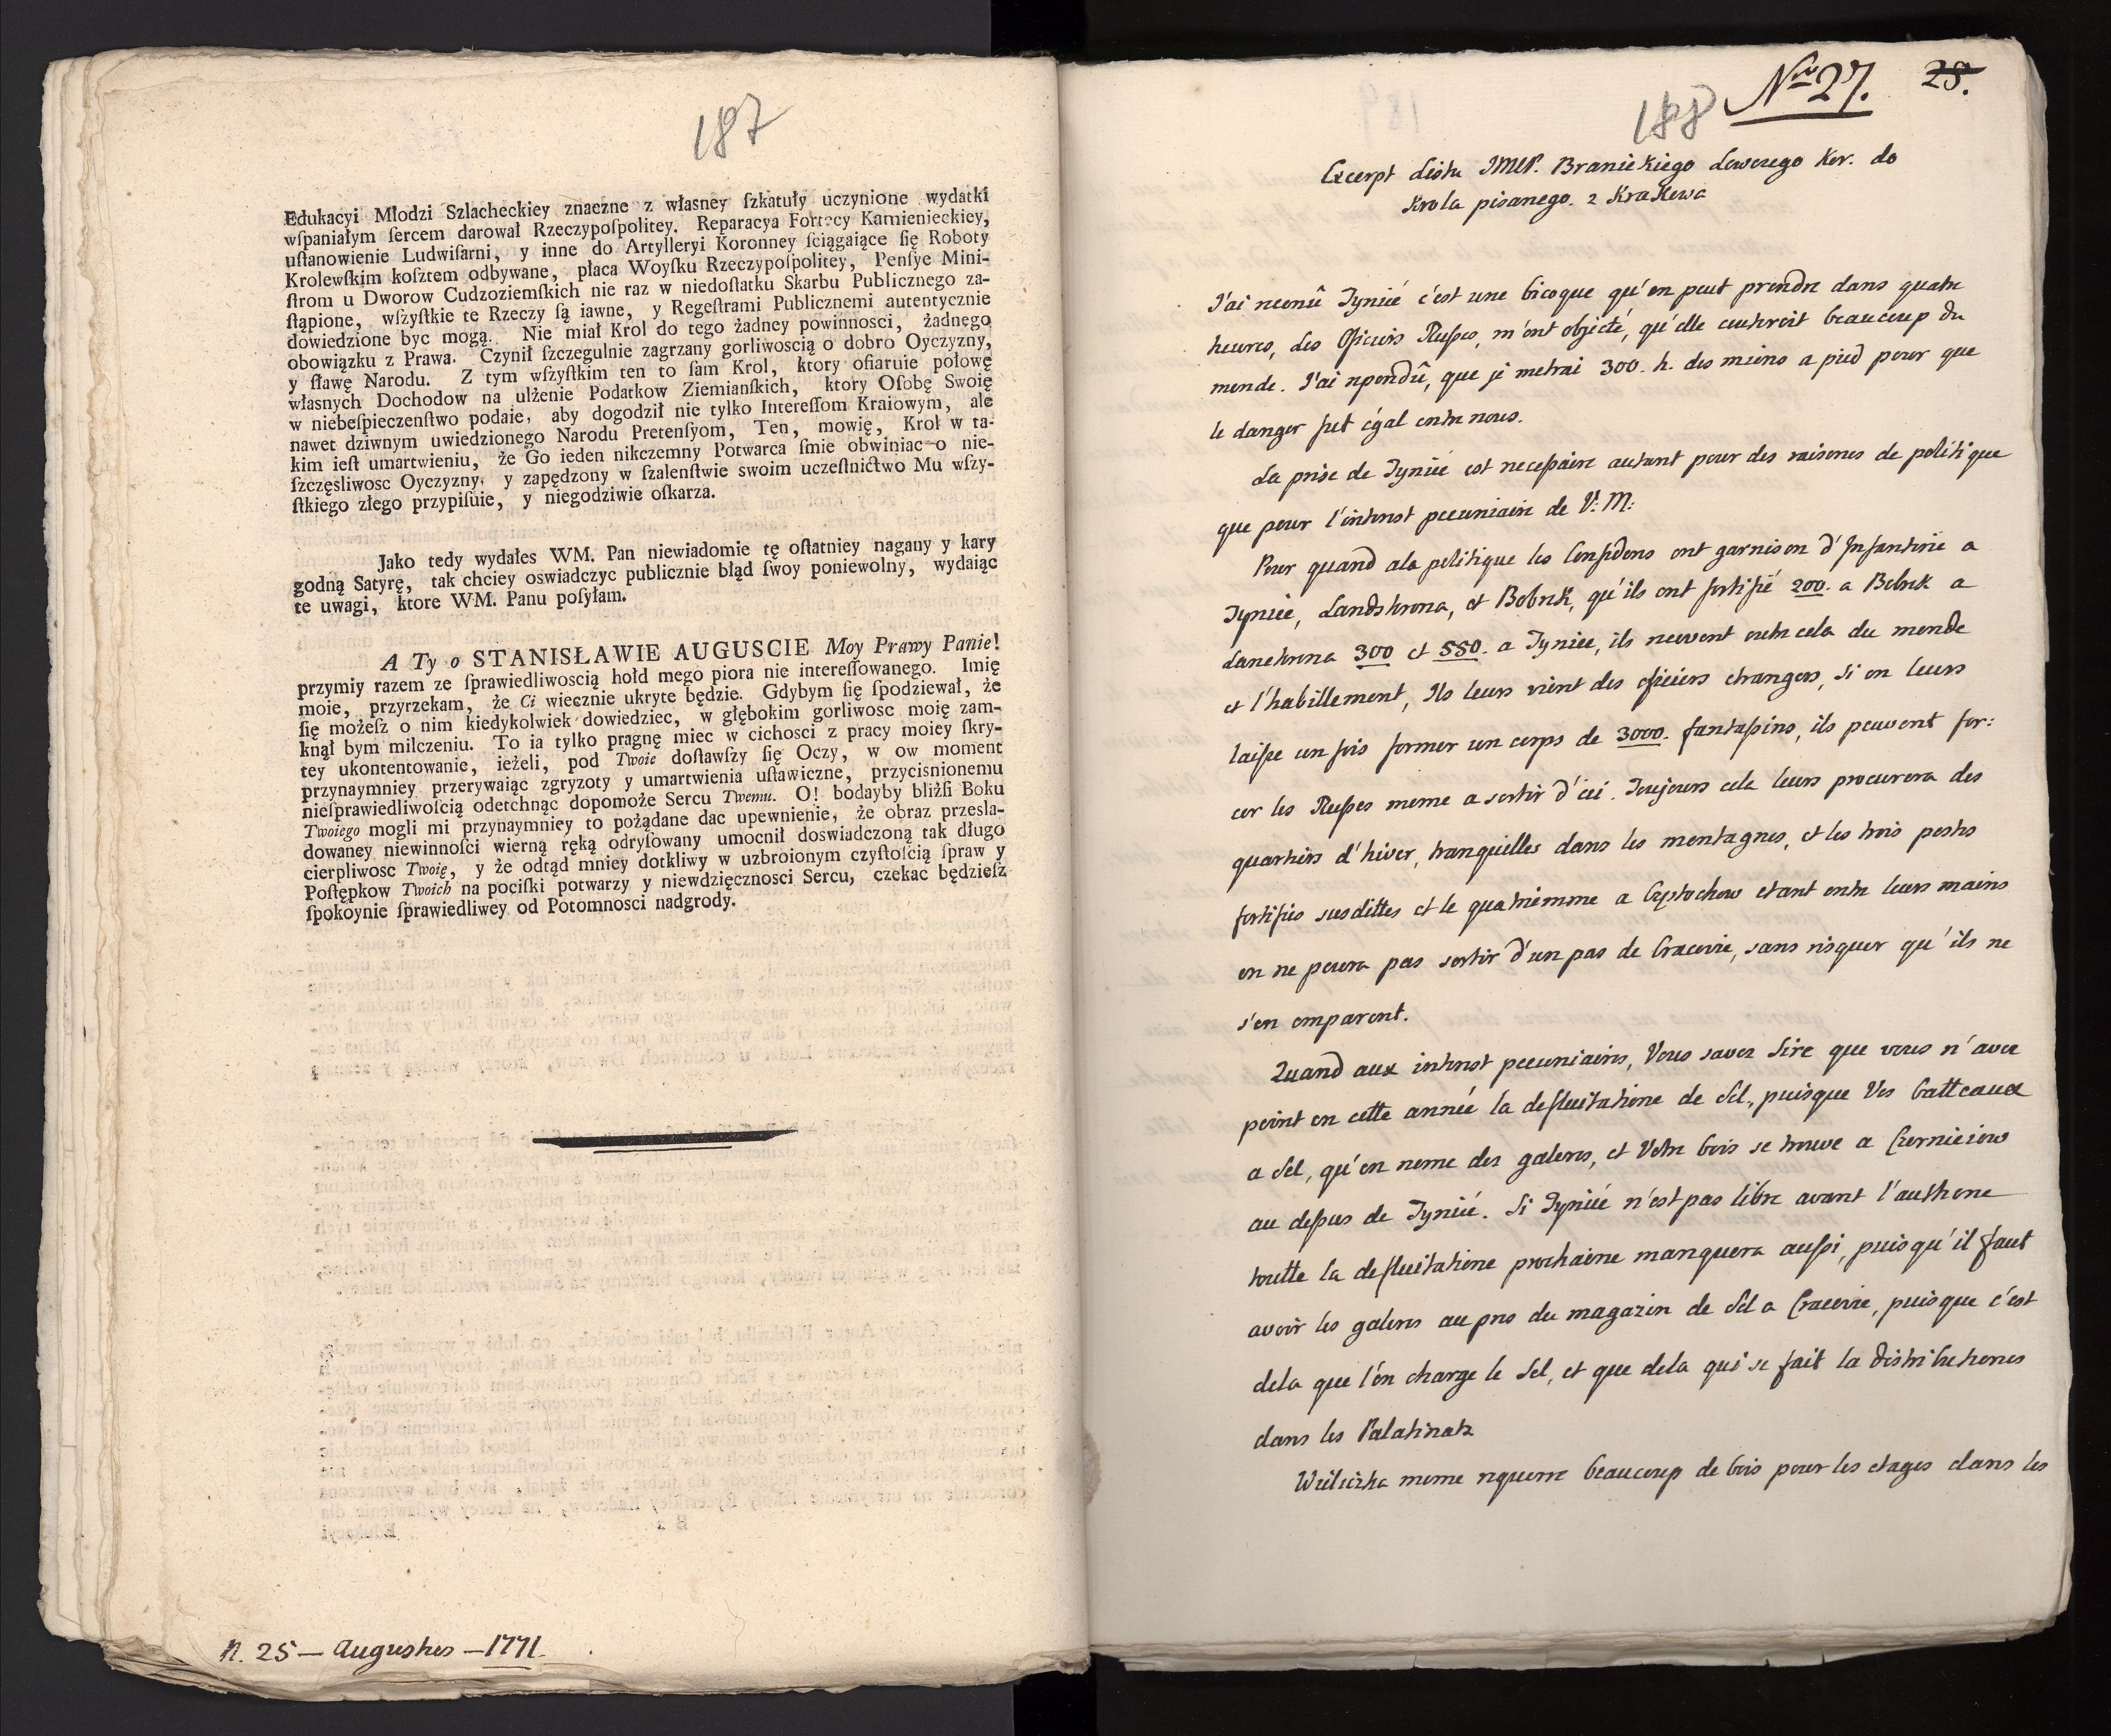 187
Edukacyi Młodzi Szlacheckiey znaczne z własney ſzkatuły uczynione wydatki
wſpaniałym ſercem darował Rzeczypoſpolitey. Reparacya Fortecy Kamienieckiey,
uſtanowienie Ludwiſarni, y inne do Artylleryi Koronney ſciągaiące ſię Roboty
Krolewſkim koſztem odbywane, płaca Woyſku Rzeczypoſpolitey, Penſye Mini-
ſtrom u Dworow Cudzoziemſkich nie raz w niedoſtatku Skarbu Publicznego za-
ſtąpione, wſzyſtkie te Rzeczy ſą iawne, y Regeſtrami Publicznemi autentycznie
dowiedzione byc mogą. Nie miał Krol do tego żadney powinnosci, żadnego
obowiązku z Prawa. Czynił ſzczegulnie zagrzany gorliwoscią o dobro Oyczyzny,
y ſławę Narodu. Z tym wſzyſtkim ten to ſam Krol, ktory ofiaruie połowę
własnych Dochodow na ulżenie Podatkow Ziemianſkich, ktory Oſobę Swoię
w niebeſpieczenſtwo podaie, aby dogodził nie tylko Intereſſom Kraiowym, ale
nawet dziwnym uwiedzionego Narodu Pretenſyom, Ten, mowię, Krol w ta-
kim ieſt umartwieniu, że Go ieden nikczemny Potwarca ſmie obwiniac o nie-
ſzczęsliwosc Oyczyzny, y zapędzony w ſzalenſtwie swoim uczeſtnictwo Mu wſzy-
ſtkiego złego przypiſuie, y niegodziwie oſkarza.
Jako tedy wydałes WM. Pan niewiadomie tę oſtatniey nagany y kary
godną Satyrę, tak chciey oswiadczyc publicznie błąd ſwoy poniewolny, wydaiąc
te uwagi, ktore WM. Panu poſyłam.
A Ty o STANISŁAWIE AUGUSCIE Moy Prawy Panie!
przymiy razem ze ſprawiedliwoscią hołd mego piora nie intereſſowanego. Imię
moie, przyrzekam, że Ci wiecznie ukryte będzie. Gdybym ſię ſpodziewał, że
ſię możeſz o nim kiedykolwiek dowiedziec, w głębokim gorliwosc moię zam-
knął bym milczeniu. To ia tylko pragnę miec w cichosci z pracy moiey ſkry-
tey ukontentowanie, ieżeli, pod Twoie doſtawſzy ſię Oczy, w ow moment
przynaymniey przerywaiąc zgryzoty y umartwienia uſtawiczne, przycisnionemu
nieſprawiedliwoſcią odetchnąc dopomoże Sercu Twemu. O! bodayby bliżſi Boku
Twoiego mogli mi przynaymniey to pożądane dac upewnienie, że obraz przesla-
dowaney niewinnoſci wierną ręką odryſowany umocnił doswiadczoną tak długo
cierpliwosc Twoię, y że odtąd mniey dotkliwy w uzbroionym czyſtoſcią ſpraw y
Poſtępkow Twoich na pociſki potwarzy y niewdzięcznosci Sercu, czekac będzieſz
ſpokoynie ſprawiedliwey od Potomnosci nadgrody.
N. 25 — Augustus — 1771.
188 Nro 27. 28.
Excerpt Listu JMCP. Branickiego Lowczego Kor. do
Krola pisanego. z Krakowa
J'ai reconû Tyniié c'est une bicoque qu'on peut prendre dans quatre
heures, des Oficiers Ruſses, m'ont objecté, qu'elle couteroit beaucoup du
monde. J'ai repondû, que je metrai 300. h. des miens a pied pour que
le danger fut égal entre nous.
La prise de Tyniié est neceſsaire autant pour des raisones de politique
que pour l'interest pecuniaire de V: M:
Pour quand ala politique les Confederes ont garnison d'Infanterie a
Tyniée, Landskrona, et Bobrek, qu'ils ont fortifié 200. a Bobrek a
Lanckrona 300 et 550. a Tyniée, ils recuvent outre cela du monde
et l'habillement, Ils leurs vient des oficiers etrangers, si on leurs
laiſse un fois former un corps de 3000. fantaſsins, ils peuvent for:
cer les Ruſses meme a sortir d'ici. Toujours cela leurs procurera des
quartiers d'hiver, tranquilles dans les montagnes, et les trois postes
fortifiés susdittes et le quatriemme a Cęstochow etant entre leurs mains
on ne poura pas sortir d'un pas de Cracovie, sans risquer qu'ils ne
s'en emparent.
Quand aux interest pecuniaires, Vous savez Sire que vous n'avez
point en cette année la defluitatione de Sel, puisque Vos batteaux
a Sel, qu'on nome des galeres, et Votre bois se trouve a Czerniciow
au deſsus de Tyniié. Si Tyniié n'est pas libre avant l'authone
toutte la defluitatione prochaine manquera auſsi, puisqu'il faut
avoir les galeres au pres du magazin de Sel a Cracovie, puisque c'est
dela que l'on charge le Sel, et que dela qui se fait la distributiones
dans les Palatinats
Wieliczka meme requerre beaucoup de bois pour les etages dans les